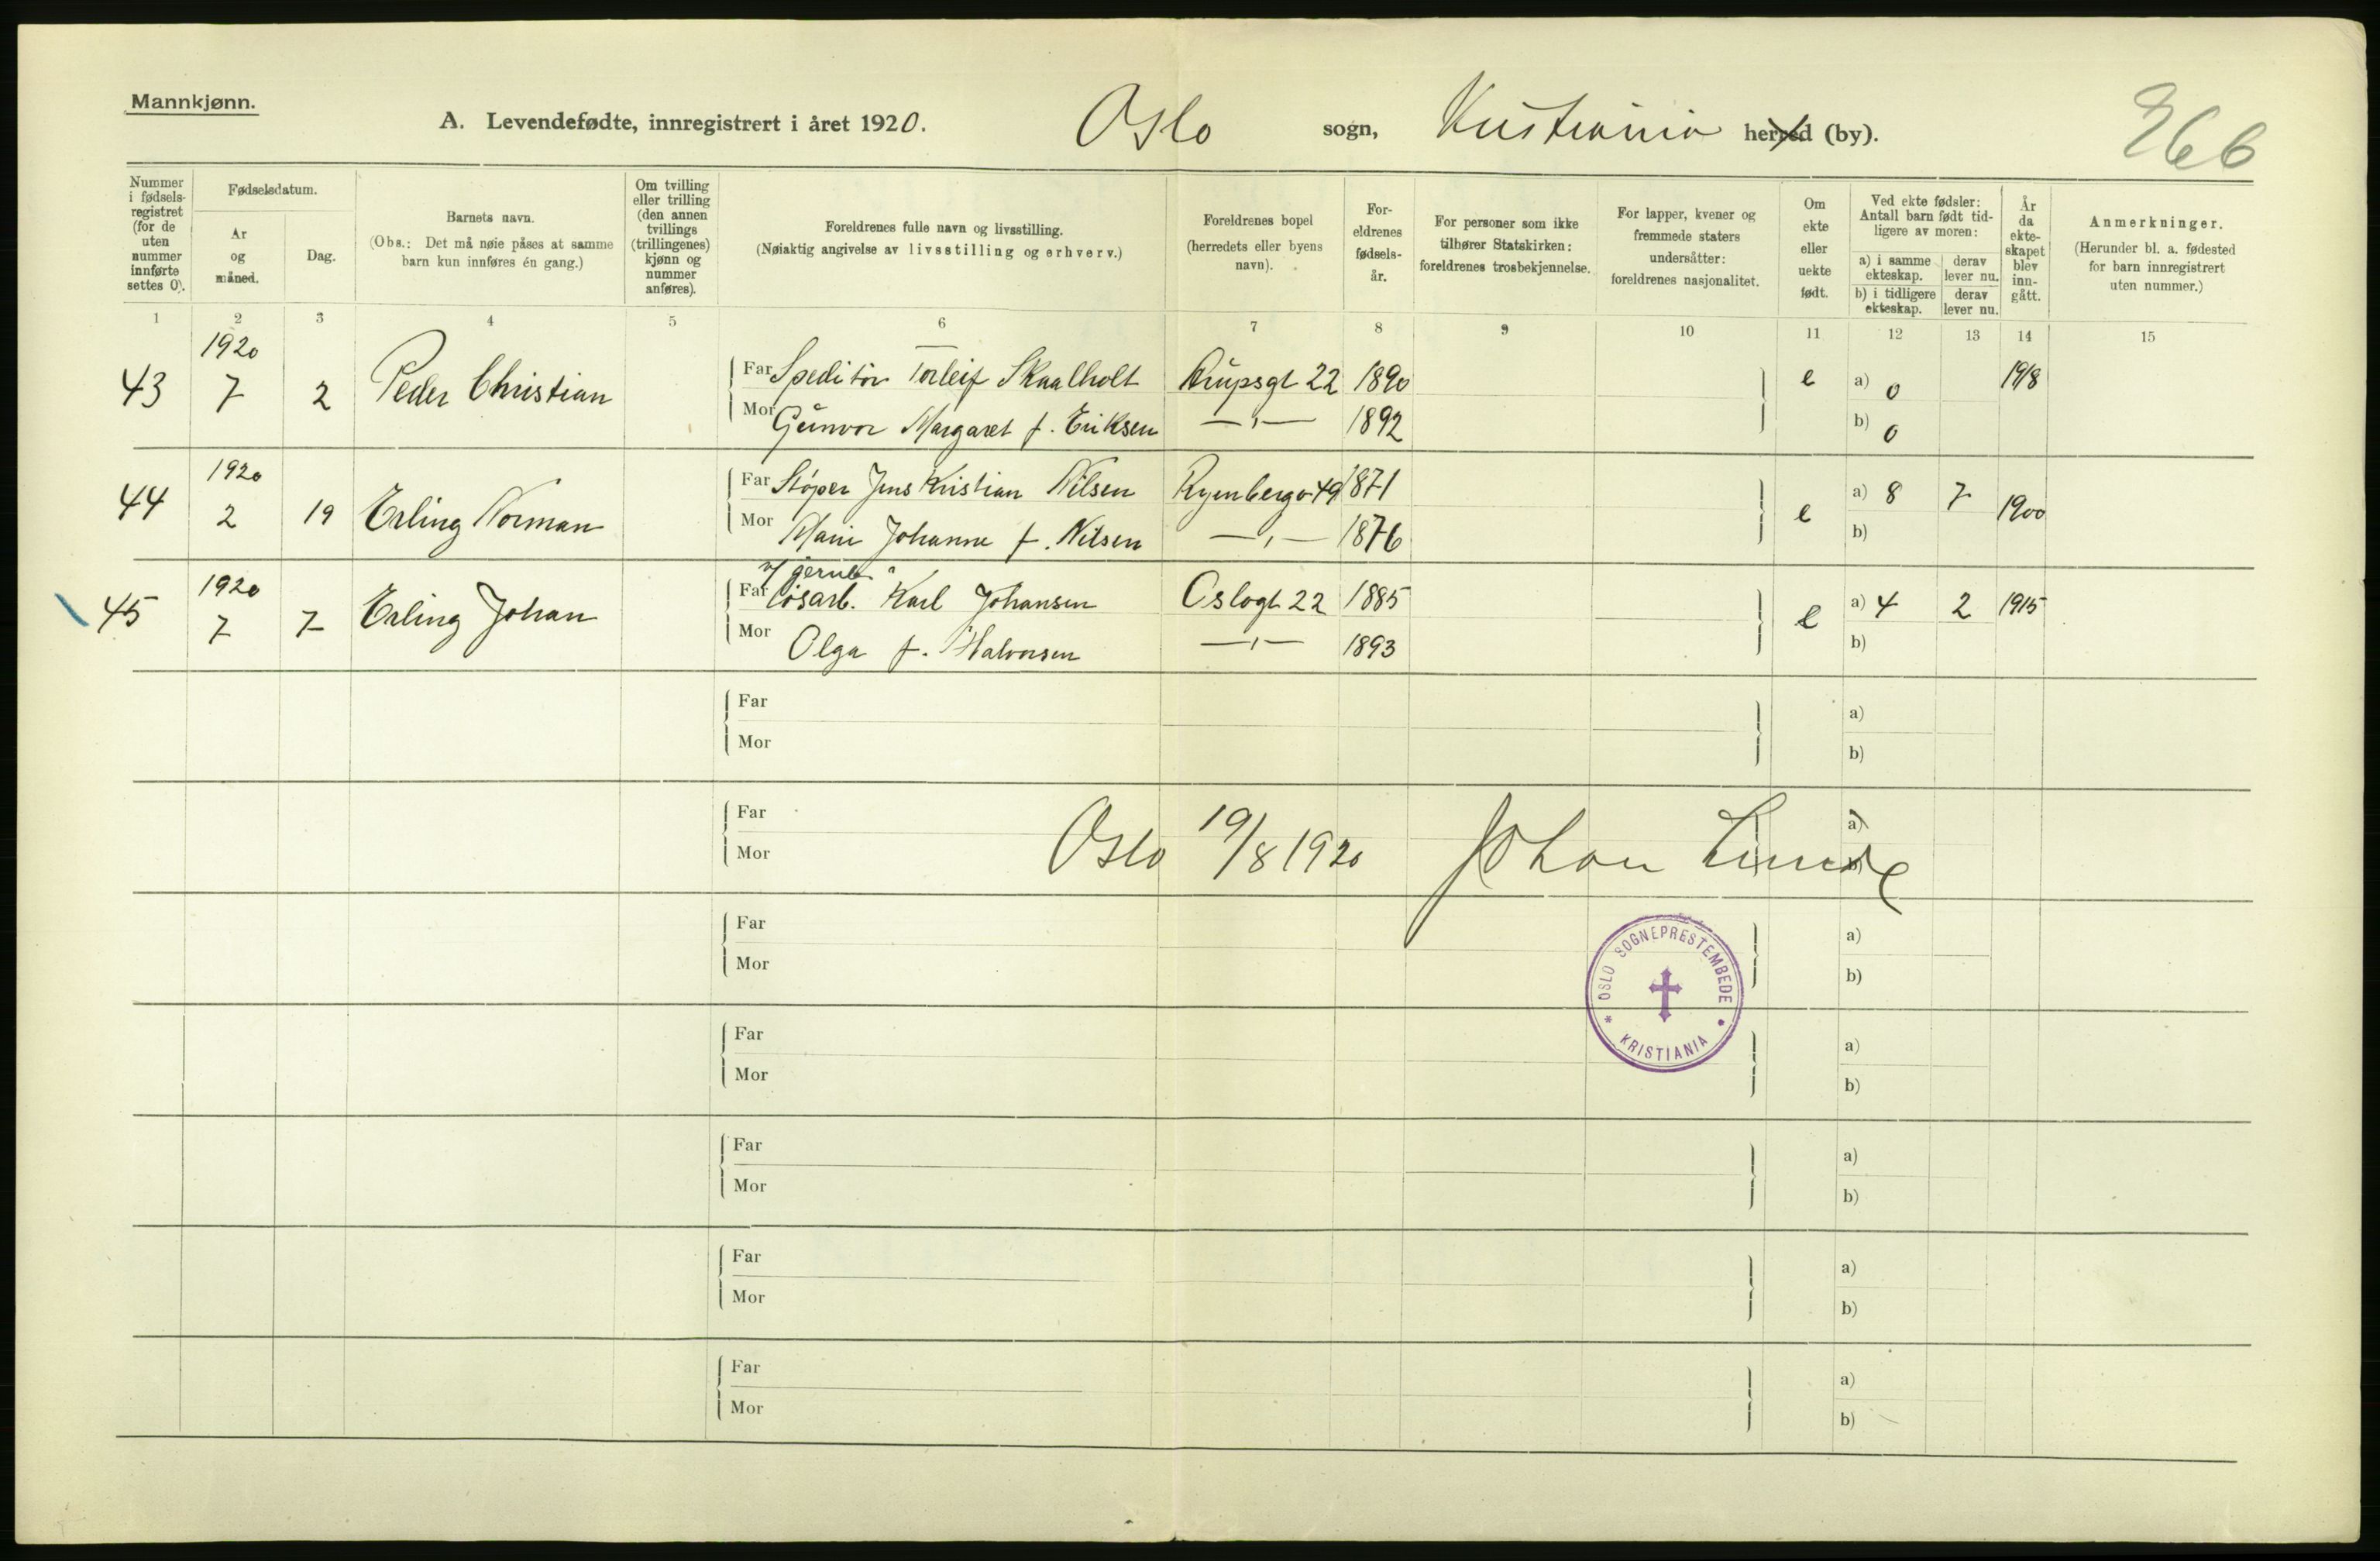 Mannkjønn.
A. Levendefødte, innregistrert i året 1920. Oslo sogn, Kristiania herred (by).
266
Nummer i fødselsregistret (for de uten nummer innførte settes 0).
Fødselsdatum.
År og måned.
Dag.
Barnets navn.
(Obs.: Det må nøie påses at samme barn kun innføres én gang.)
Om tvilling eller trilling (den annen tvillings (trillingenes) kjønn og nummer anføres).
Foreldrenes fulle navn og livsstilling.
(Nøiaktig angivelse av livsstilling og erhverv.)
Foreldrenes bopel (herredets eller byens navn).
Foreldrenes fødselsår.
For personer som ikke tilhører Statskirken: foreldrenes trosbekjennelse.
For lapper, kvener og fremmede staters undersåtter: foreldrenes nasjonalitet.
Om ekte eller uekte født.
Ved ekte fødsler: Antall barn født tidligere av moren:
a) i samme ekteskap.
derav lever nu.
b) i tidligere ekteskap.
derav lever nu.
År da ekteskapet blev inngått.
Anmerkninger.
(Herunder bl. a. fødested for barn innregistrert uten nummer.)
1 2 3 4 5 6 7 8 9 10 11 12 13 14 15
43 1920 7 2 Peder Christian Far Speditør Torleif Skaalholt Arupsgt 22 1890 e a) 0 1918
Mor Gunvor Margaret f. Eriksen —„— 1892 b) 0
44 1920 2 19 Erling Norman Far Støper Jens Kristian Nilsen Ryenbergv 49 1871 e a) 8 7 1900
Mor Marie Johanne f. Nilsen —„— 1876 b)
45 1920 7 7 Erling Johan Far Løsarb. Karl Johansen Oslogt 22 1885 e a) 4 2 1915
Mor Olga f. Halvorsen —„— 1893 b)
Far a)
Mor b)
Far a)
Mor
Oslo 19/8 1920 Johan Lunde
Far a)
Mor b)
OSLO SOGNEPRESTEMBEDE
* KRISTIANIA •
Far a)
Mor b)
Far a)
Mor b)
Far a)
Mor b)
Far a)
Mor b)